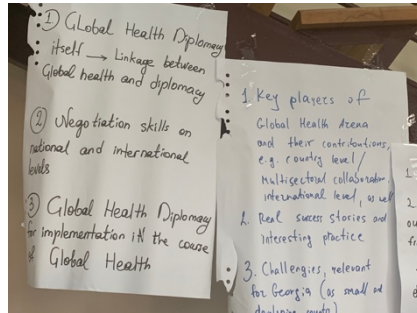 ① Global Health Diplomacy
itself → Linkage between
Global health and diplomacy
② Negotiation skills on
national and international
levels
③ Global Health Diplomacy
for implementation in the course
of Global Health
1 Key players of
Global Health Arena
and their contributions,
e.g. country level/
Multisectoral collaboration,
international level, as well
2. Real success stories and
interesting practice
3. Challengies, relevant
for Georgia (as small and
developing country)
1
2